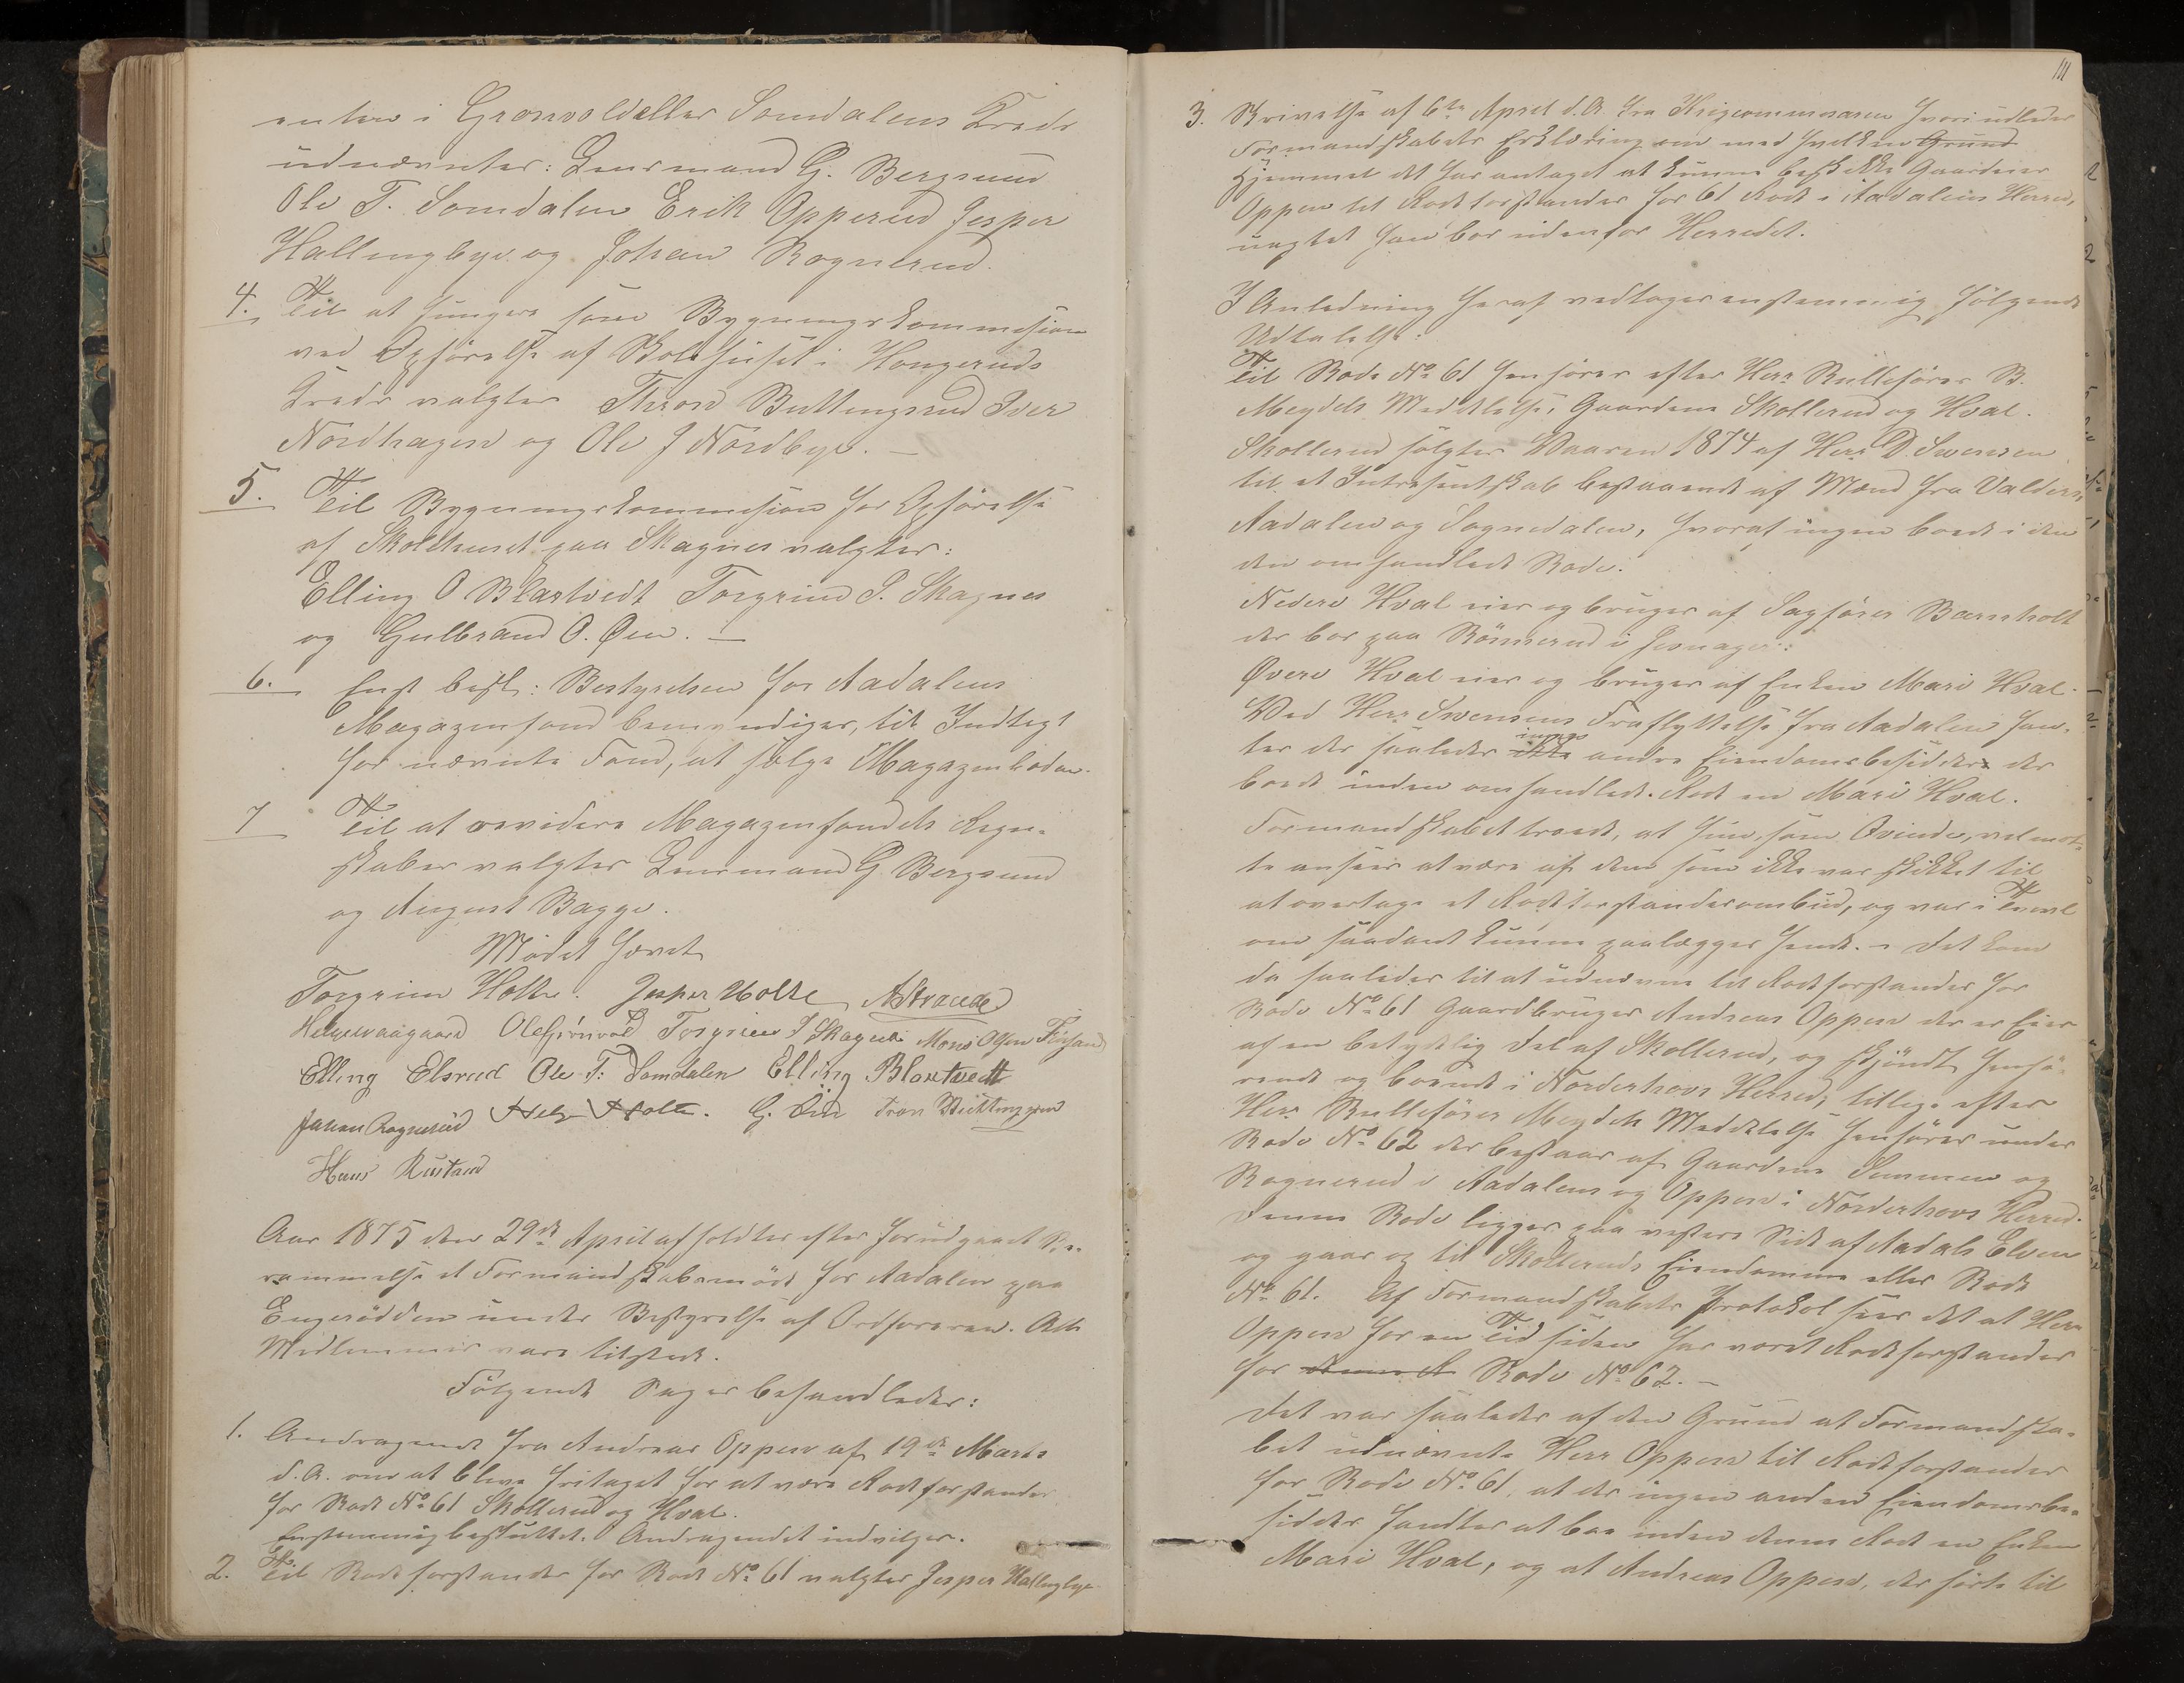 enten i Grønvold eller Somdalens Kreds
udnævntes: Lensmand G. Bergsund
Ole T. Somdalen Erik Opperud Jesper
Hallingbye og Johan Rognerud.
4. Til at fungere som Bygningskommission
ved Opførelse af Skolehuset i Hongeruds
Kreds valgtes Thron Buttingsrud Iver
Nordhagen og Ole J Nordbye. —
5. Til Bygningskommission for Opførelse
af Skolehuset paa Skagnes valgtes:
Elling O Blaktvedt Torgrim T. Skagnes
og Gulbrand O. Øen. —
6. Enst besl: Bestyrelsen for Aadalens
Magazinfond bemyndiges, til Indtægt
for nævnte Fond, at sælge Magazinboden.
7 Til at revidere Magazinfondets Regn-
skaber valgtes Lensmand G. Bergsund
og August Bagge.
Mødet hævet
Torgrim Holte. Jesper Holte AStrande
Helge Vaagaard Ole Grønvold Torgrim T Skagnes Mons Olsen Finsand
Elling Elsrud Ole T: Somdalen Elling Blaktvedt
Johan Rognerud Helge Holte. G. Øen Tron Buttingsrud
Hans Rustand
Aar 1875 den 29de April afholdtes efter forudgaaet Be-
rammelse et Formandskabsmøde for Aadalen paa
Engerodden under Bestyrelse af Ordføreren. Alle
Medlemmer vare tilstede.
Følgende Sager behandledes:
1. Andragende fra Andreas Oppen af 19de Marts
d. A. om at blive fritaget for at være Rodeforstander
for Rode No 61 Skollerud og Hval.
Enstemmig besluttet: Andragendet indvilges.
2. Til Rodeforstander for Rode No 61 valgtes Jesper Hallingbye
111
3. Skrivelse af 6te April d. A. fra Krigscommisairen hvori udbedes
Formandskabets Erklæring om med hvilken Grund
Hjemmel det har antaget at kunne beskikke Gaardeier
Oppen til Rodeforstander for 61 Rode i Aadalens Herred,
uagtet han bor udenfor Herredet.
I Anledning heraf vedtoges enstemmig følgende
Udtalelse:
Til Rode No 61 henhører efter Herr Rullefører B.
Meydels Meddelelse, Gaardene Skollerud og Hval.
Skollerud solgtes Vaaren 1874 af Herr D. Svensen
til et Interesentskab bestaaende af Mænd fra Valders,
Aadalen og Sognedalen, hvoraf ingen boede i den
den omhandlede Rode.
Nedere Hval eies og bruges af Sagfører Barnholt
der bor paa Rönnerud i Jevnager:
Øvere Hval eies og bruges af Enken Mari Hval.
Ved Herr Svensens Fraflyttelse fra Aadalen fan-
tes der saaledes ikke inngen andre Eiendomsbesiddere der
boede inden omhandlede Rode en Mari Hval.
Formandskabet troede, at hun, som Qvinde, vel maat-
te ansees at være af dem som ikke var skikket til
at overtage et Rodeforstanderombud, og var i Tvivl
om saadant kunne paalægges hende. – Det kom
da saaledes til at udnævne til Rodeforstander for
Rode No 61 Gaardbruger Andreas Oppen der er Eier
af en betydelig Del af Skollerud, og skjöndt henhö-
rende og boende i Norderhovs Herred, tillige efter
Herr Rulleförer Meydels Meddelelse henhörer under
Rode No 62 der bestaar af Gaardene Semmen og
Rognerud i Aadalen og Oppen i Norderhovs Herred.
Denne Rode ligger paa vestere Side af Aadals Elven
og gaar op til Skolleruds Eiendomme eller Rode
No 61. Af Formandskabets Protokol sees det at Herr
Oppen for en Tid siden har været Rodeforstander
for denne R Rode No 62. –
Det var saaledes af den Grund at Formandska-
bet udnævnte Herr Oppen til Rodeforstander
for Rode No 61, at der ingen anden Eiendomsbe-
sidder fandtes at boe inden denne Rode en Enken
Mari Hval, og at Andreas Oppen, der hörte til